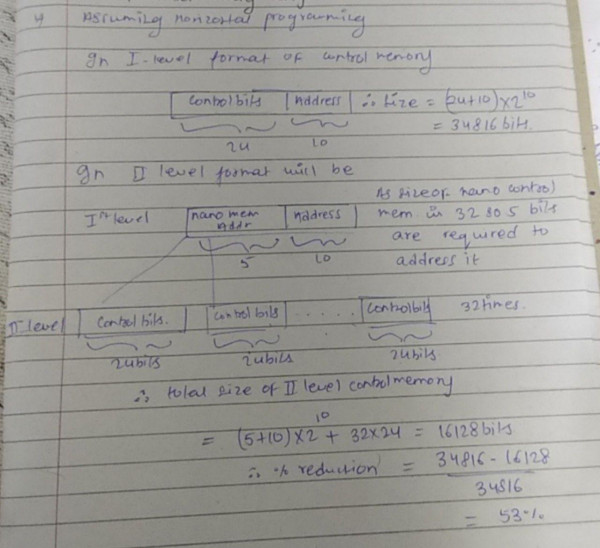 4 Assuming horizontal programming
In I-level format of control memory
Control bits Address ∴ Size = (24+10)×2^10
24 10 = 34816 bits.
In II level format will be
As size of nano control
Ist level nano mem Addr Address mem is 32 so 5 bits
5 10 are required to
address it
II-level Control bits. Control bits ..... Control bits 32 times.
24 bits 24 bits 24 bits
∴ total size of II level control memory
= (5+10)×2^10 + 32×24 = 16128 bits
∴ % reduction = 34816 - 16128
34816
= 53%